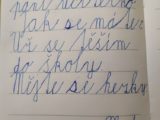 paní
Jak se máte
Už se těším
do školy
Mějte se hezky